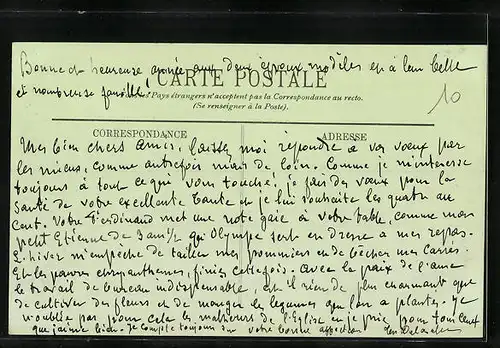 Bonne et heureuse année aux deux époux modèles et à leur belle
et nombreuse famille.
CARTE POSTALE
Pays étrangers n'acceptent pas la Correspondance au recto.
(Se renseigner à la Poste).
10
CORRESPONDANCE
ADRESSE
Mes bien chers Amis, laissez moi répondre à vos vœux par
les miens, comme autrefois mais de loin. Comme je m'intéresse
toujours à tout ce qui vous touche! je fais des vœux pour la
santé de votre excellente tante et je lui souhaite les quatre au
cent. Votre Ferdinand met une note gaie à votre table, comme mon
petit Etienne de 3 ans 1/2 qui Olympe sert en à mes repas.
L'hiver m'empêche de tailler mes pommiers en de bêcher mes carrés.
Et les pauvres chrysanthèmes, finies cette fois. Avec la paix de l'âme
le travail de bureau indispensable, est il rien de plus charmant que
de cultiver des fleurs et de manger les légumes que l'on a plantés. Je
n'oublie pas pour cela les malheurs de l'Eglise en je prie pour tous ceux
que j'aime bien. Je compte toujours sur votre bonne affection